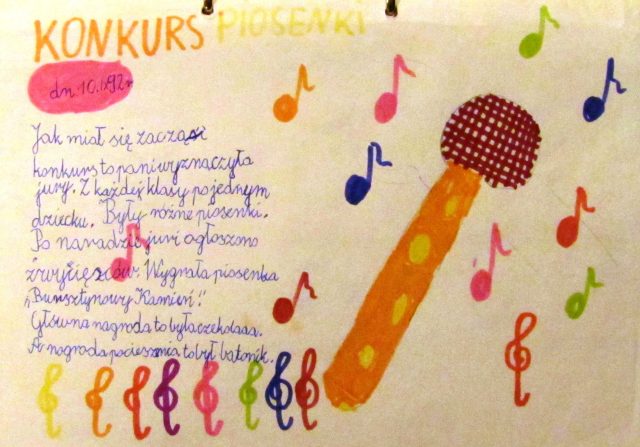 KONKURS PIOSENKI
Jak miał się zacząć
konkurs to pani wyznaczyła
jury. Z każdej klasy po jednym
dziecku. Były różne piosenki.
Po naradzie jury ogłoszono
zwycięzców. Wygrała piosenka
„Bursztynowy Kamień".
Główna nagroda to była czekolada.
A nagroda pocieszenia to był batonik.